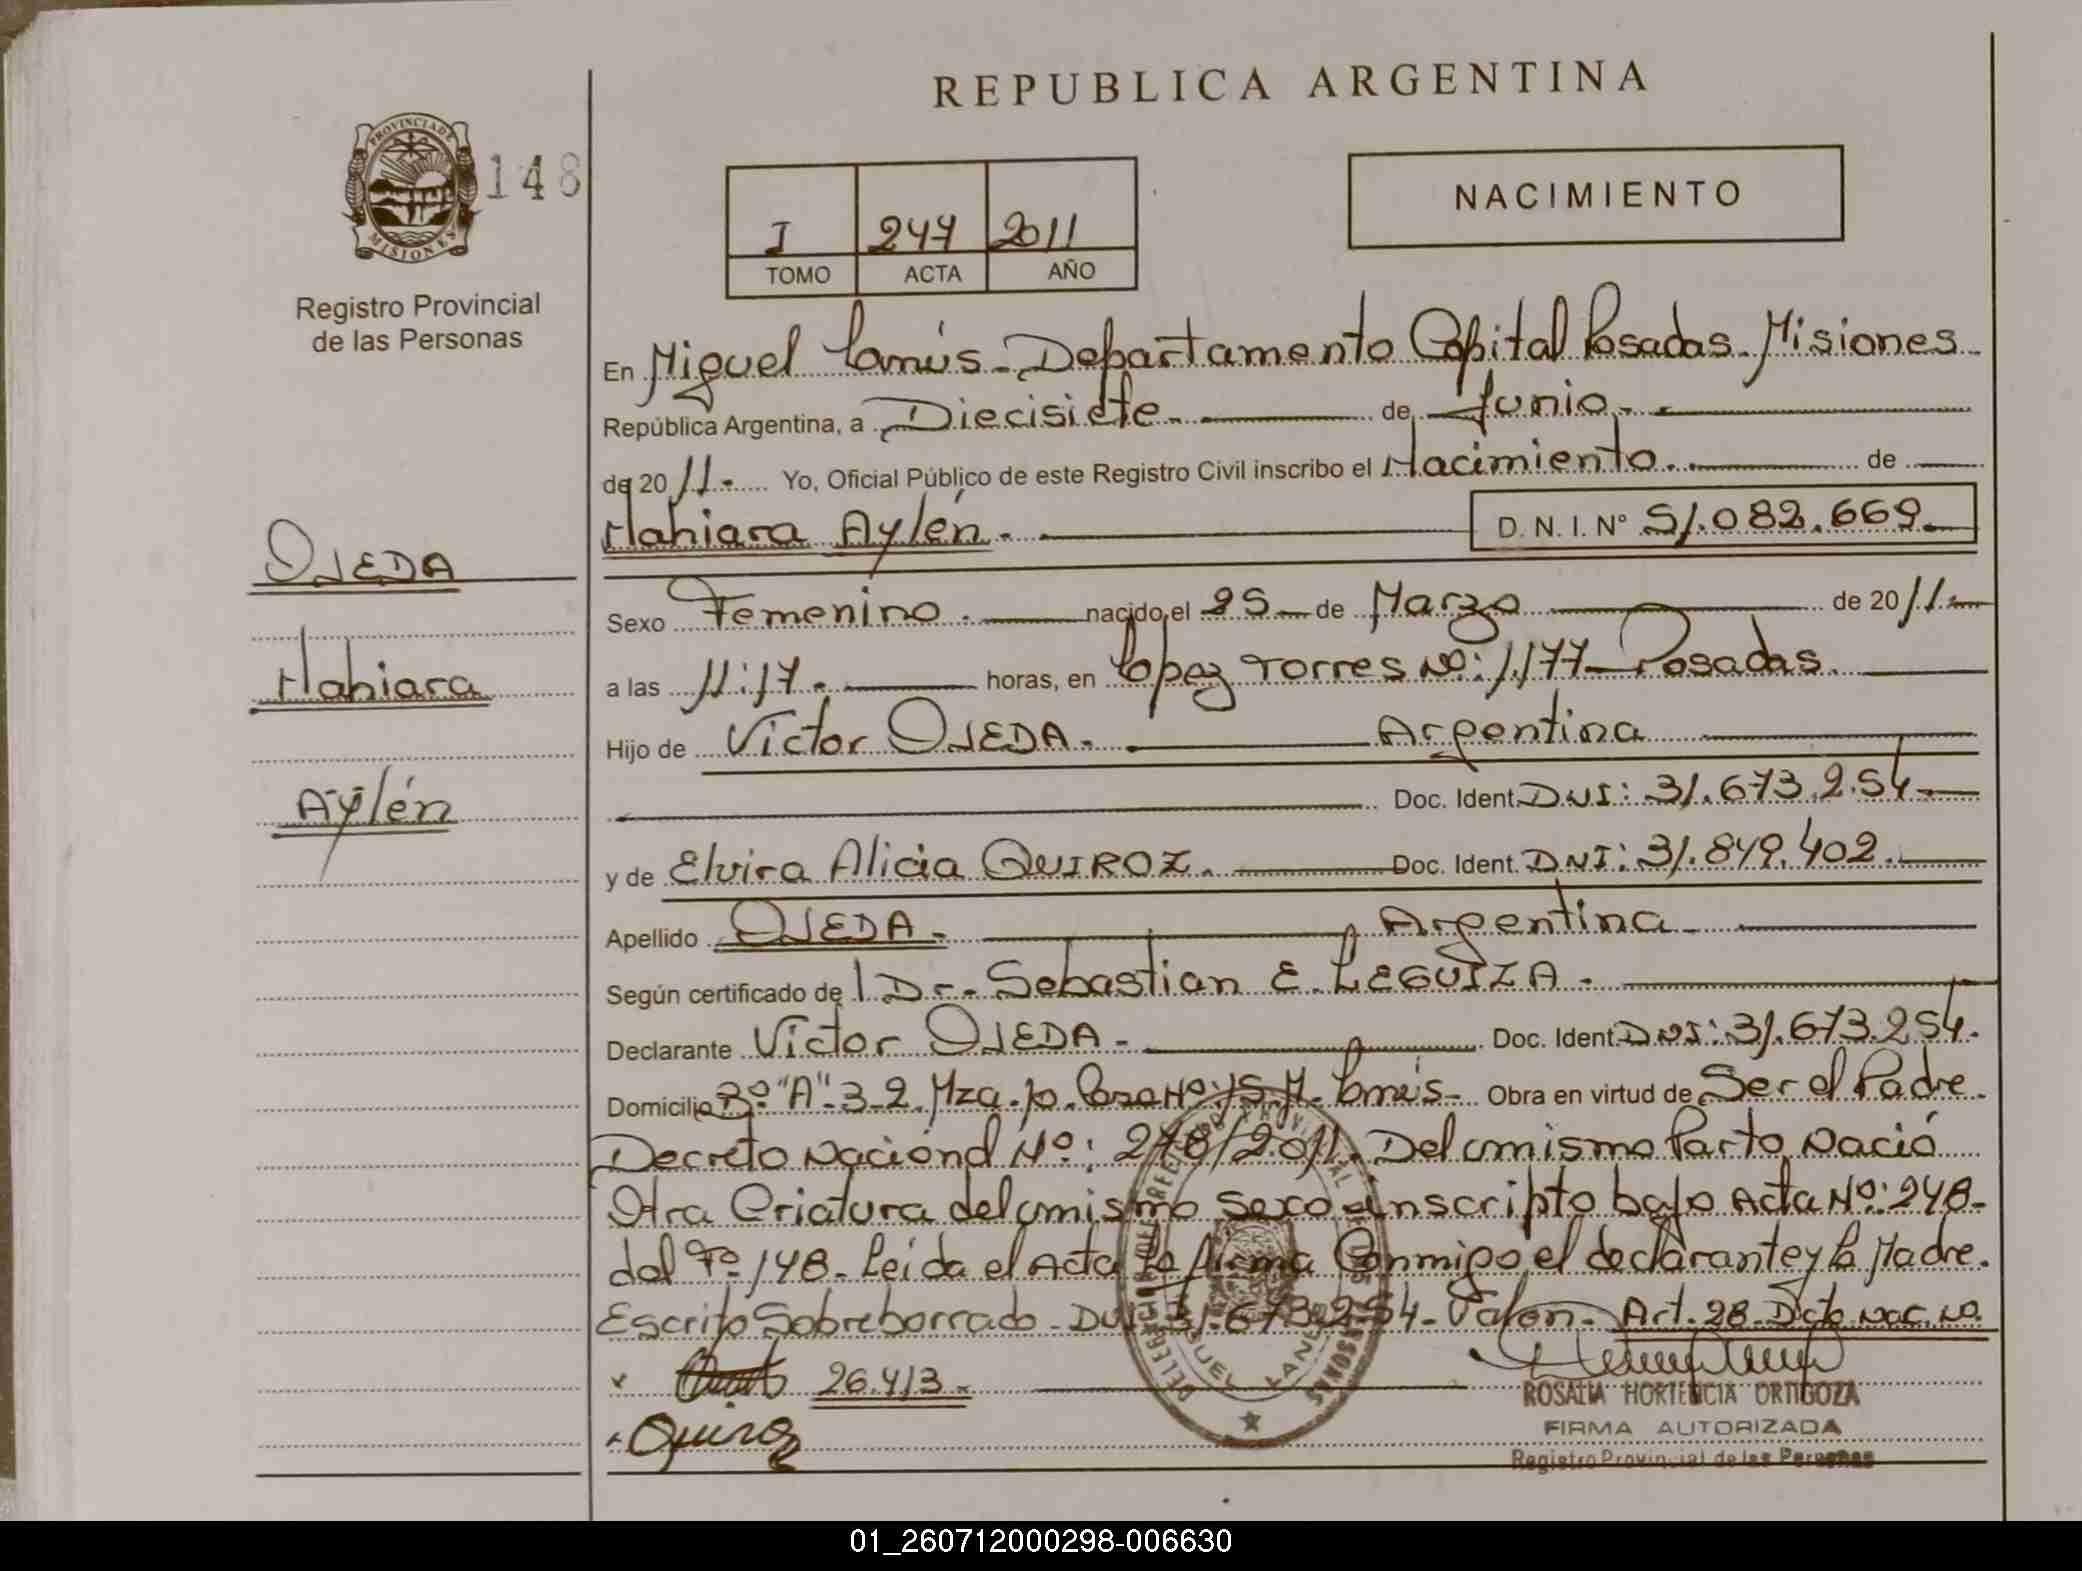 REPUBLICA ARGENTINA
PROVINCIA DE
MISIONES
148
Registro Provincial
de las Personas
I 247 2011
TOMO ACTA AÑO
NACIMIENTO
En Miguel Lanús - Departamento Capital Posadas - Misiones
República Argentina, a Diecisiete de Junio
de 2011 Yo, Oficial Público de este Registro Civil inscribo el Nacimiento de
Nahiara Aylén D. N. I. N° 51.082.669
OJEDA
Nahiara
Aylén
Sexo Femenino nacido el 25 de Marzo de 2011
a las 11:17 horas, en Lopez Torres Nº: 1.177 - Posadas
Hijo de Víctor OJEDA Argentina
Doc. Ident. DNI: 31.673.254
y de Elvira Alicia QUIROZ Doc. Ident. DNI: 31.849.402
Apellido OJEDA Argentina
Según certificado del Dr. Sebastian E. LEGUIZA
Declarante Víctor OJEDA Doc. Ident. DNI: 31.673.254
Domicilio "A" 3-2 Mza. Casa Nº: 15 M. Lanús Obra en virtud de Ser el Padre
Decreto Nacional Nº: 278/2011. Del mismo Parto Nació
Otra Criatura del mismo sexo inscripto bajo Acta Nº: 248
del Fº 148. Leída el Acta la firma Conmigo el declarante y la Madre.
Escrito Sobreborrado - DNI 31.673.254 - Valen - Art. 28 Dcto Nac. Nº
26.413
Quiroz
ROSALIA HORTENCIA ORTIGOZA
FIRMA AUTORIZADA
Registro Provincial de las Personas
01_260712000298-006630